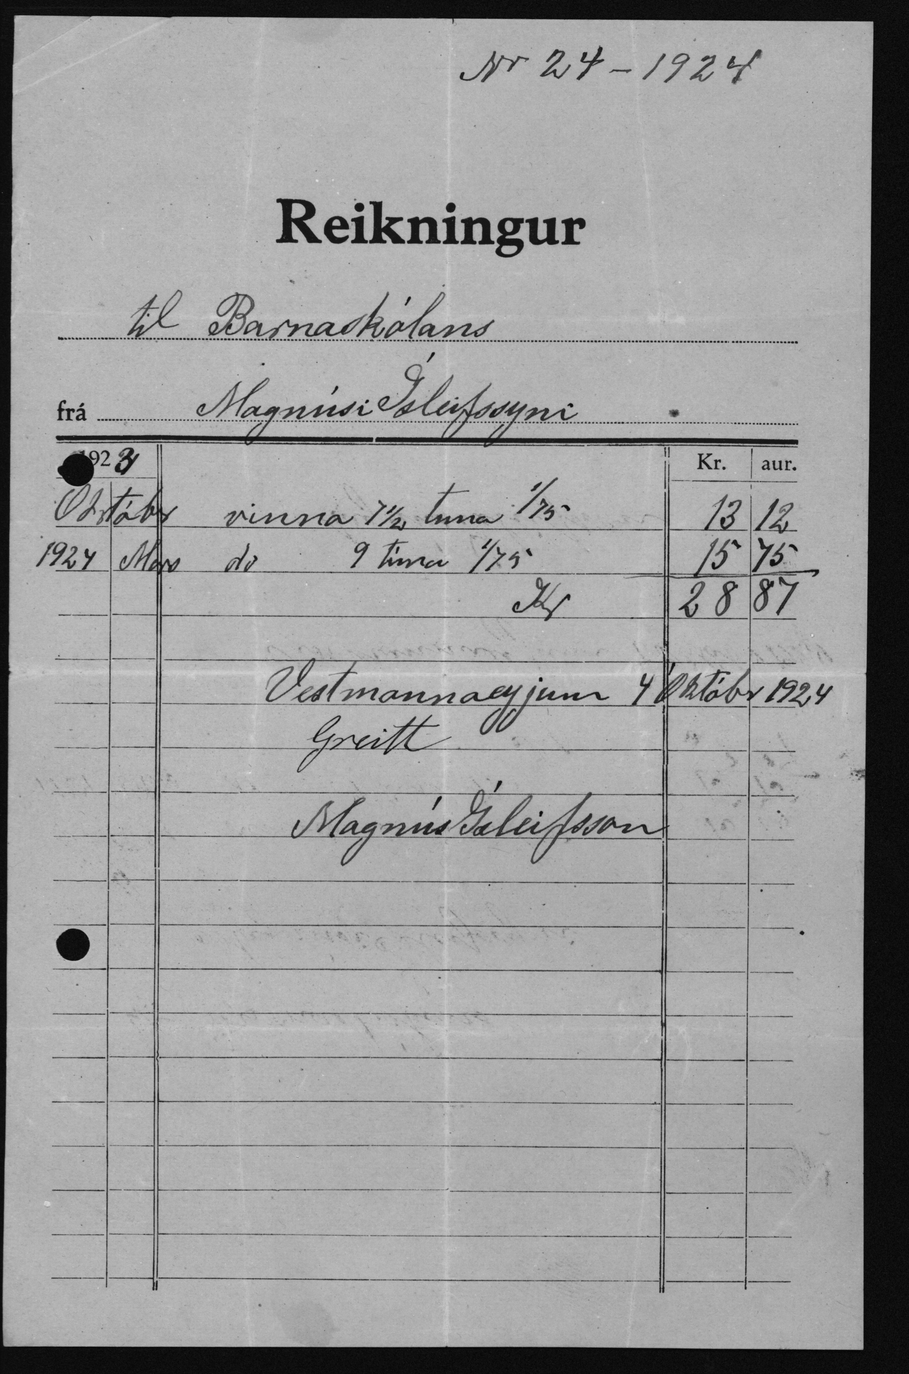 Nr 24 - 1924
Reikningur
til Barnaskólans
frá Magnúsi Ísleifssyni
1923 Kr. aur.
Október vinna 7 1/2 tíma 1/75 13 12
1924 Mars do 9 tíma 1/75 15 75
Kr 28 87
Vestmannaeyjum 4 Októbr 1924
Greitt
Magnús Ísleifsson